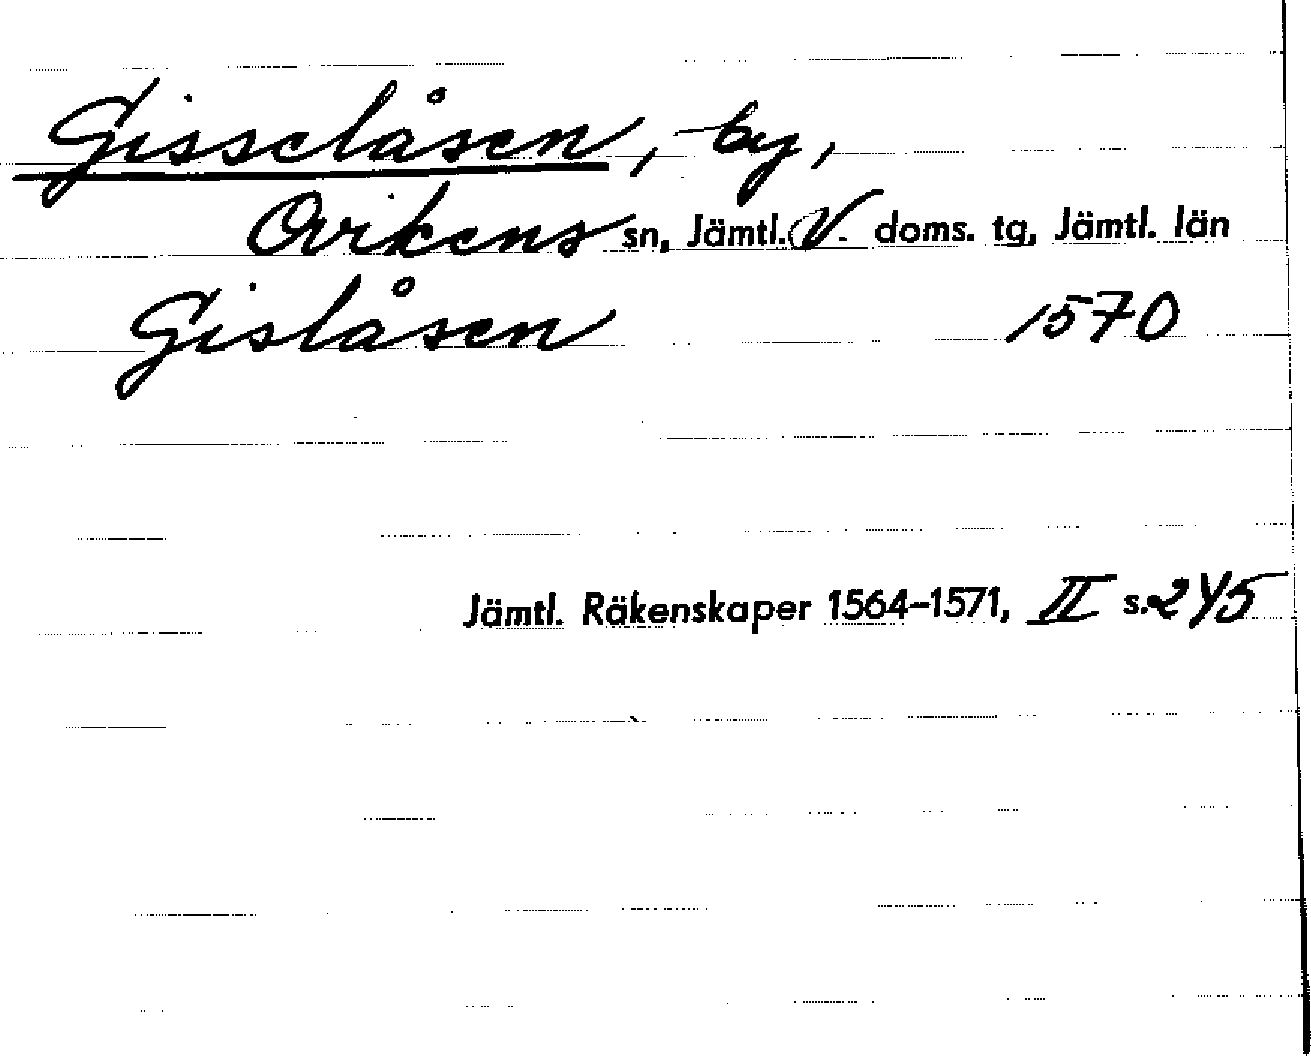 Gisselåsen, by,
Ovikens sn, Jämtl. V. doms. tg, Jämtl. län
Gislåsen 1570
Jämtl. Räkenskaper 1564-1571, II s. 245